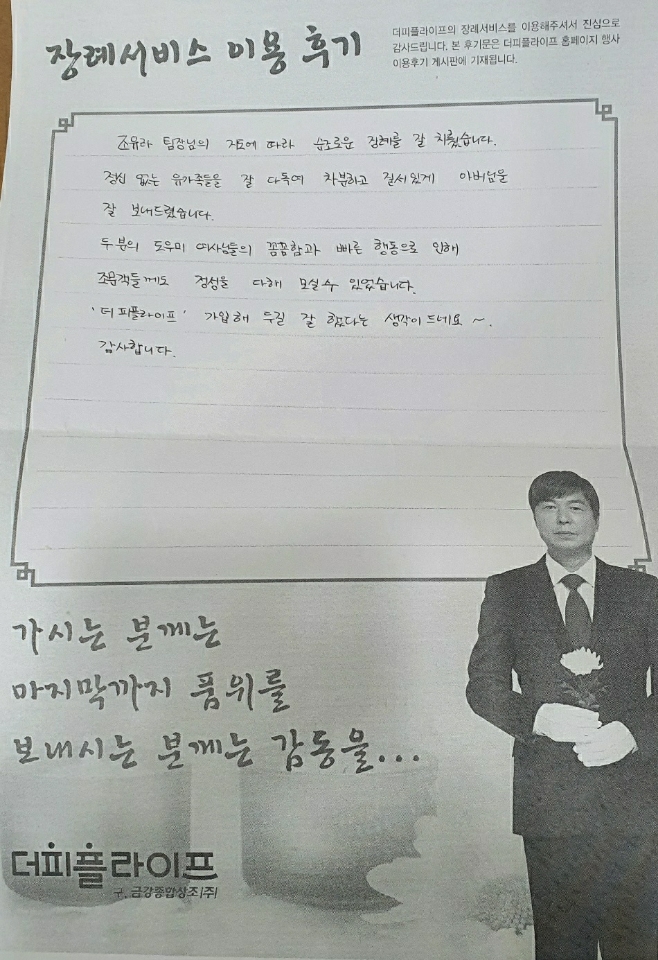 장례서비스 이용 후기
더피플라이프의 장례서비스를 이용해주셔서 진심으로
감사드립니다. 본 후기문은 더피플라이프 홈페이지 행사
이용후기 게시판에 기재됩니다.
조유라 팀장님의 지도에 따라 순조로운 장례를 잘 치뤘습니다.
정신 없는 유가족들을 잘 다독여 차분하고 질서있게 아버님을
잘 보내드렸습니다.
두분의 도우미 여사님들의 꼼꼼함과 빠른 행동으로 인해
조문객들께도 정성을 다해 모실수 있었습니다.
'더 피플라이프' 가입해 두길 잘 했다는 생각이 드네요 ~.
감사합니다.
가시는 분께는
마지막까지 품위를
보내시는 분께는 감동을...
더피플라이프
구. 금강종합상조(주)